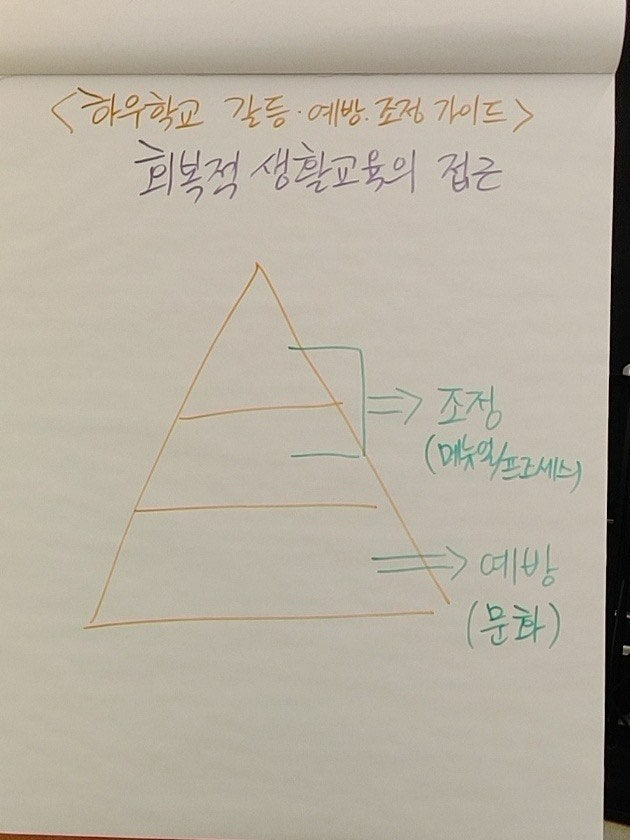 <하우학교 갈등·예방·조정 가이드>
회복적 생활교육의 접근
조정
(메뉴얼/프로세스)
예방
(문화)